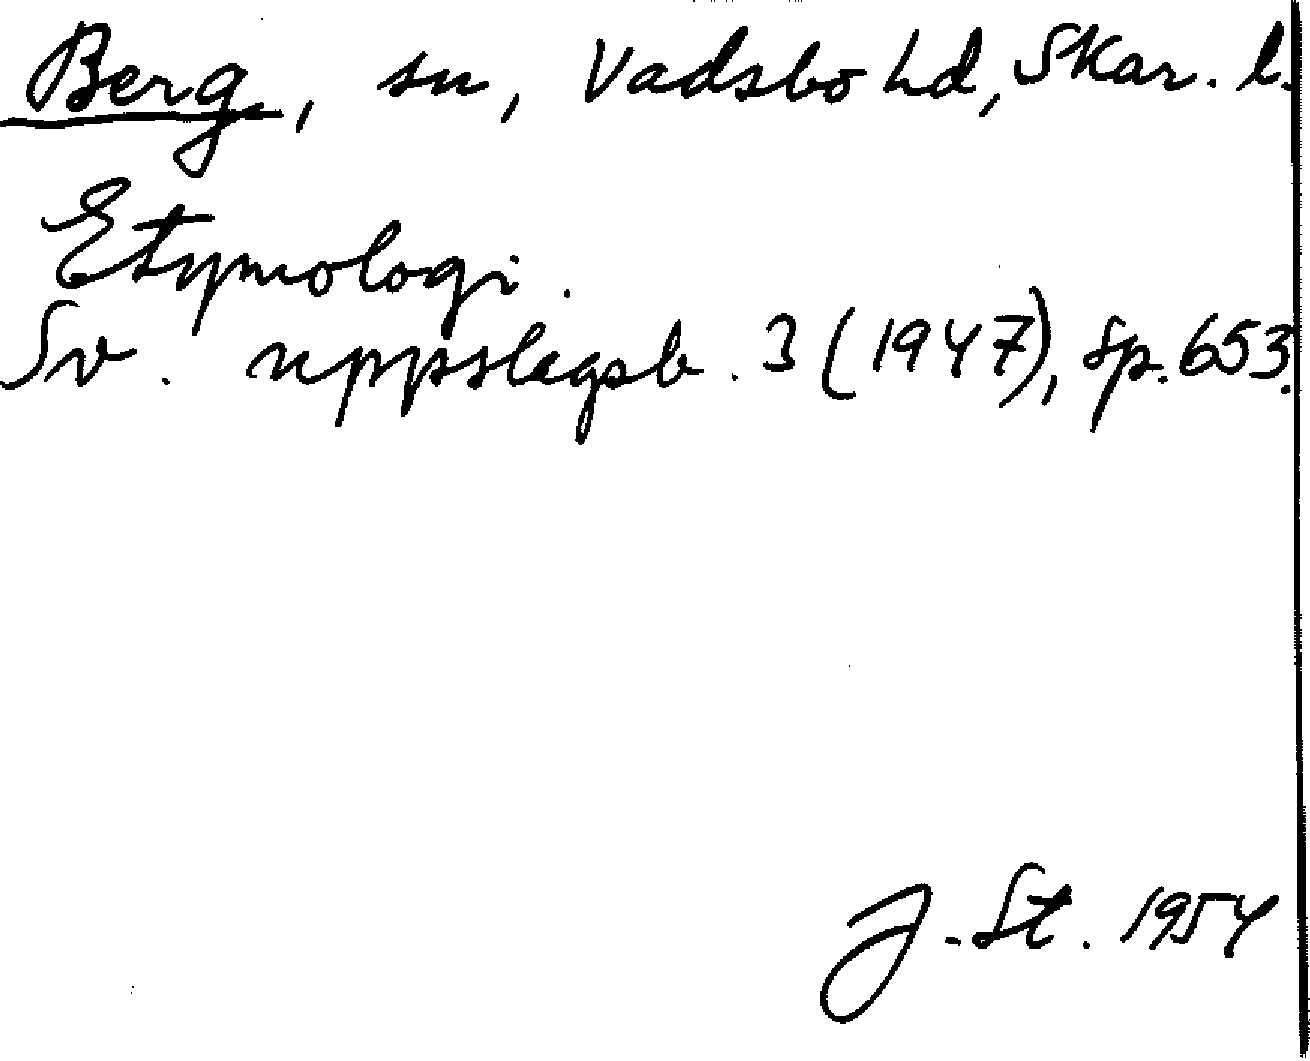 Berg, sn, Vadsbo hd, Skar. l.
Etymologi.
Sv. uppslagsb. 3 (1947), sp. 653.
J. St. 1954